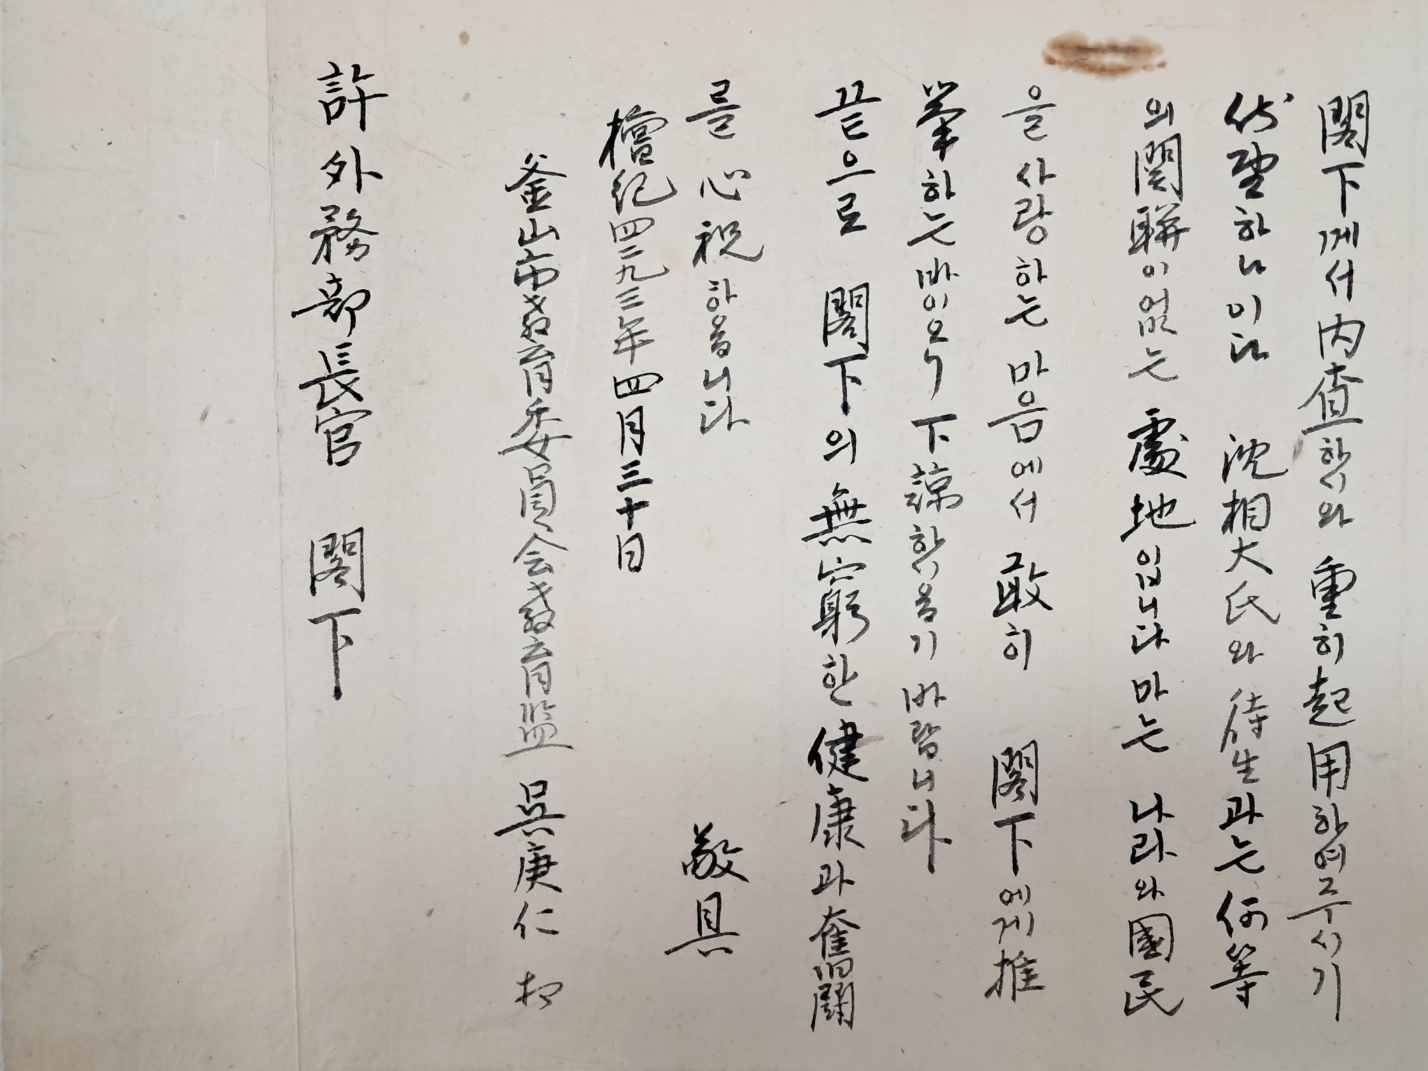 閣下게서 內査하시와 重히 起用하여주시기
伏望하나이다 沈相大氏와 侍生과는 何等
의 関聯이 없는 處地입니다마는 나라와 國民
을 사랑하는 마음에서 敢히 閣下에게 推
擧하는 바이오니 下諒하시옵기 바랍니다
끝으로 閣下의 無窮한 健康과 奮鬪
를 心祝하옵니다 敬具
檀紀四二九三年 四月三十日
釜山市敎育委員会敎育監 吳庚仁 拜
許外務部長官 閣下